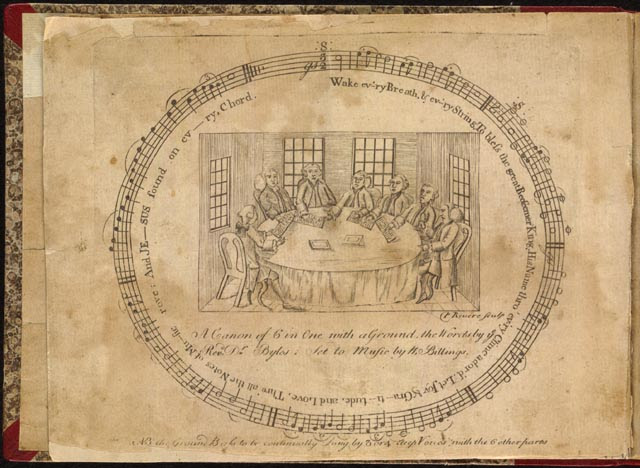 :S:
Wake ev'ry Breath, & ev'ry String To bless the great Redeemer King, His Name thro' ev'ry Clime ador'd: Let Joy & Gra—ti—tude, and Love, Thro' all the Notes of Mu—sic rove; And JE—SUS sound on ev—'ry, Chord.
:S:
P. Revere sculp
A Canon of 6 in One with a Ground, the Words by ye
Revd. Dr. Byles; Set to Music by W. Billings.
NB. the Ground Bass to be continually Sung by 3 or 4 deep Voices with the 6 other parts